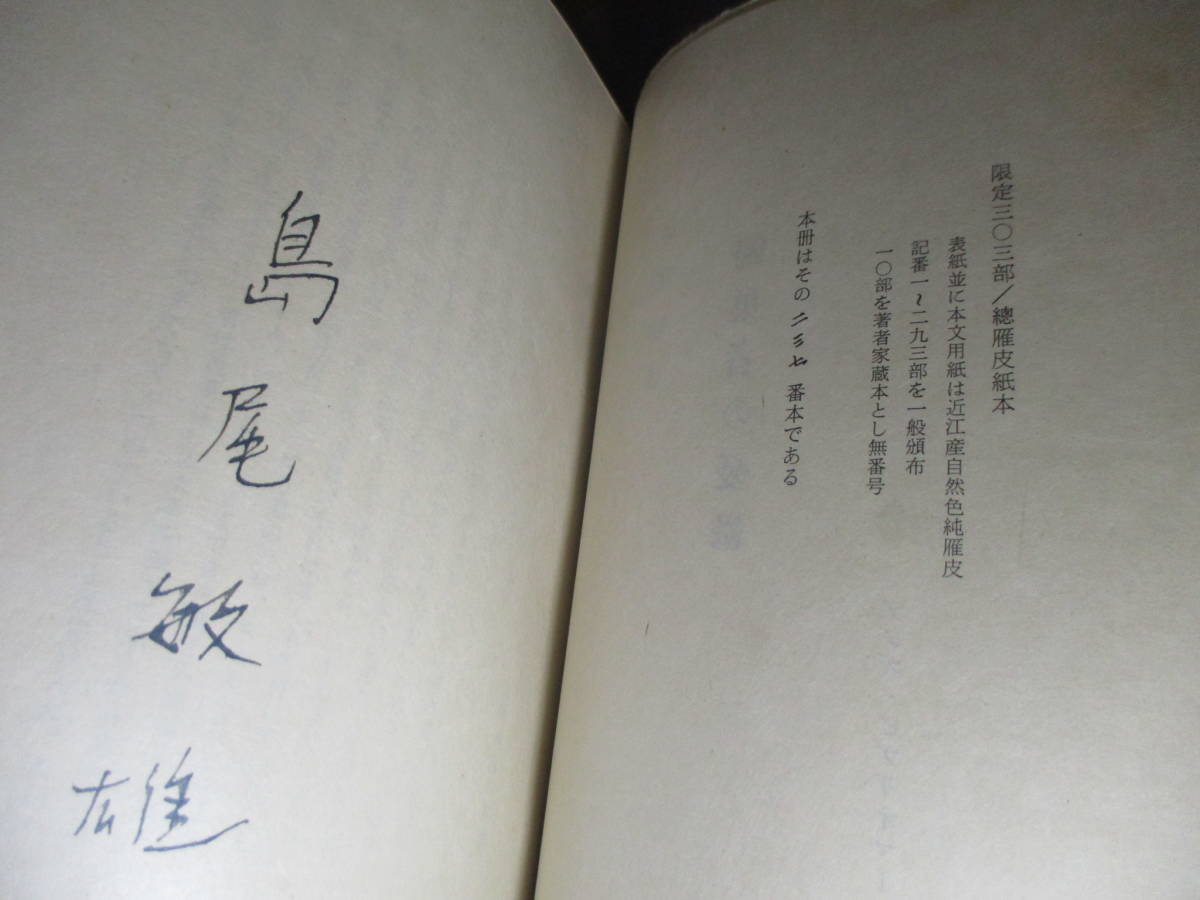 限定三〇三部/總雁皮紙本
表紙並に本文用紙は近江産自然色純雁皮
記番一~二九三部を一般頒布
一〇部を著者家蔵本とし無番号
本冊はその 二三七 番本である
島尾敏雄